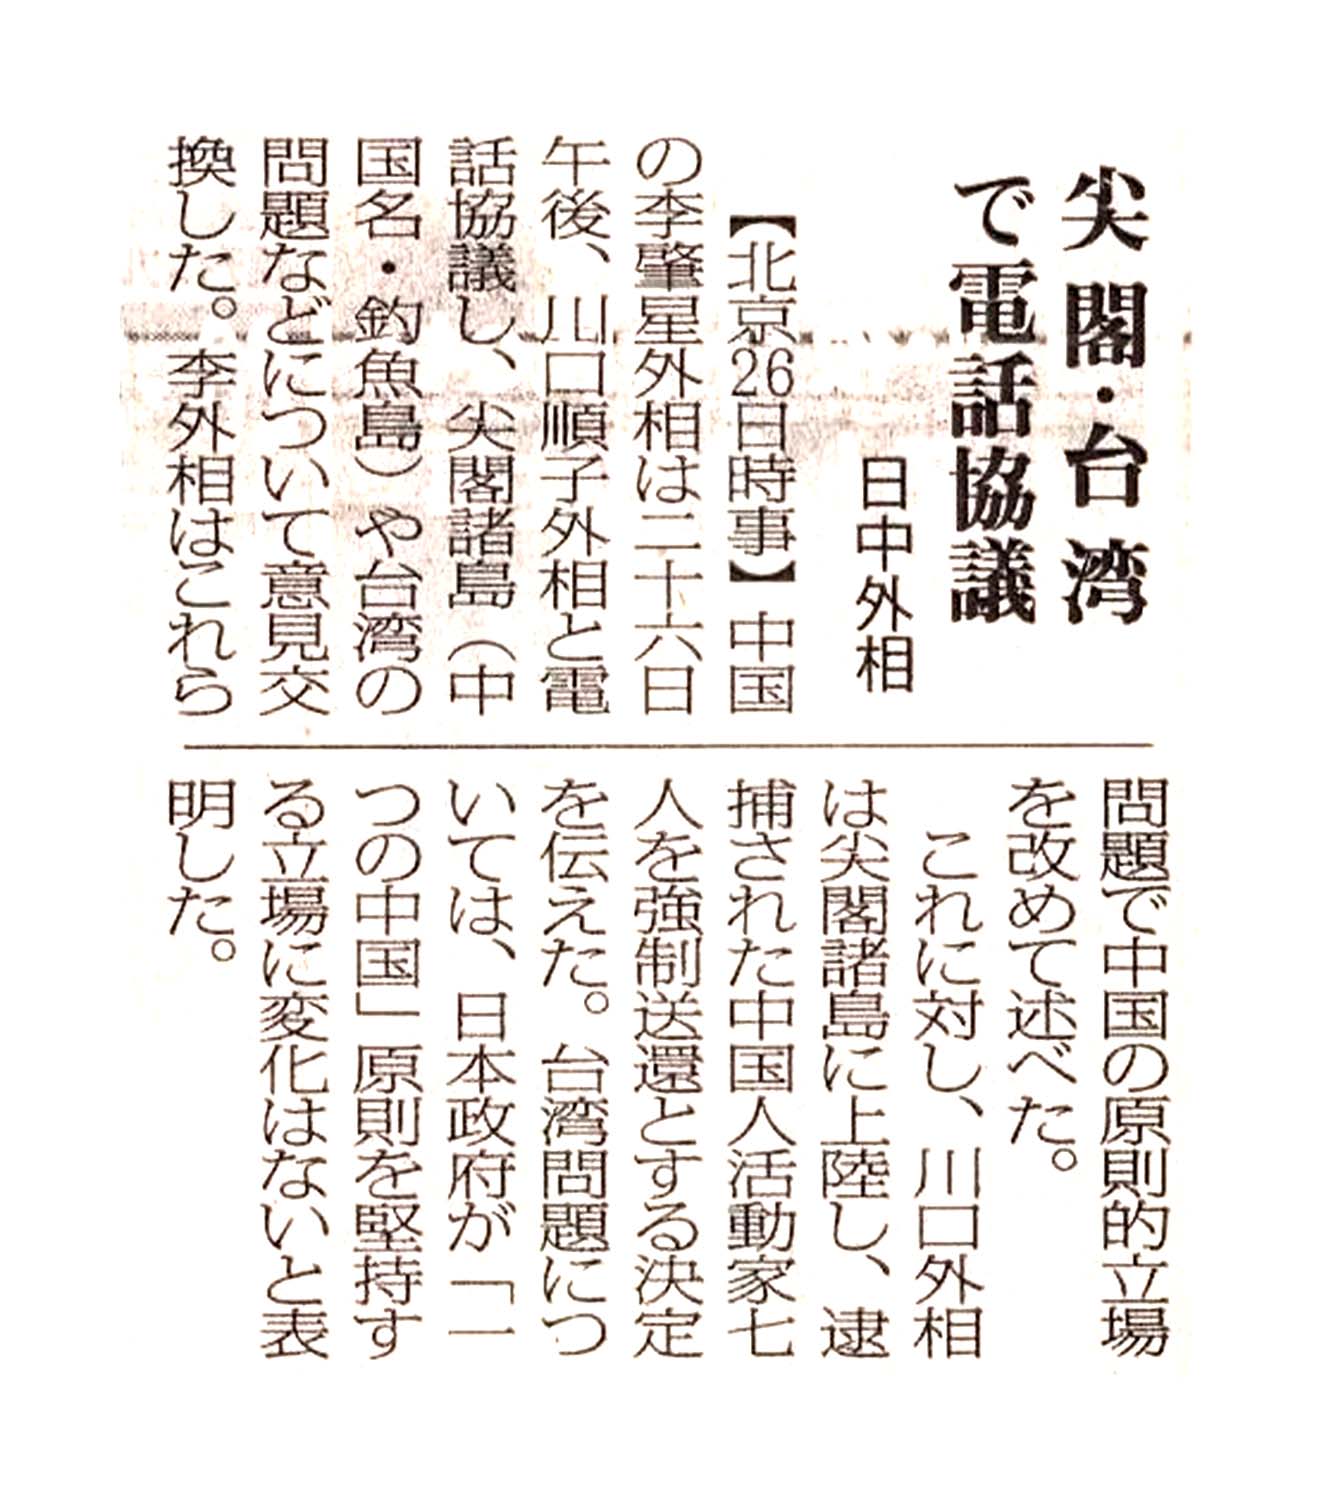 尖閣・台湾
で電話協議
日中外相
【北京26日時事】中国
の李肇星外相は二十六日
午後、川口順子外相と電
話協議し、尖閣諸島（中
国名・釣魚島）や台湾の
問題などについて意見交
換した。李外相はこれら
問題で中国の原則的立場
を改めて述べた。
これに対し、川口外相
は尖閣諸島に上陸し、逮
捕された中国人活動家七
人を強制送還とする決定
を伝えた。台湾問題につ
いては、日本政府が「一
つの中国」原則を堅持す
る立場に変化はないと表
明した。